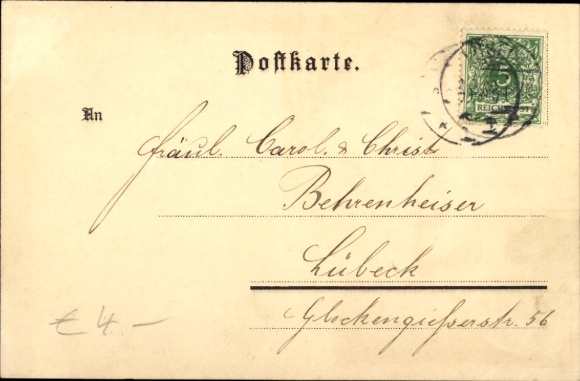 Postkarte.
An
Fräul. Carol. & Christ
Behrenheiser
Lübeck
Glockengießerstr. 56
5
REICHSPOST
€ 4.-